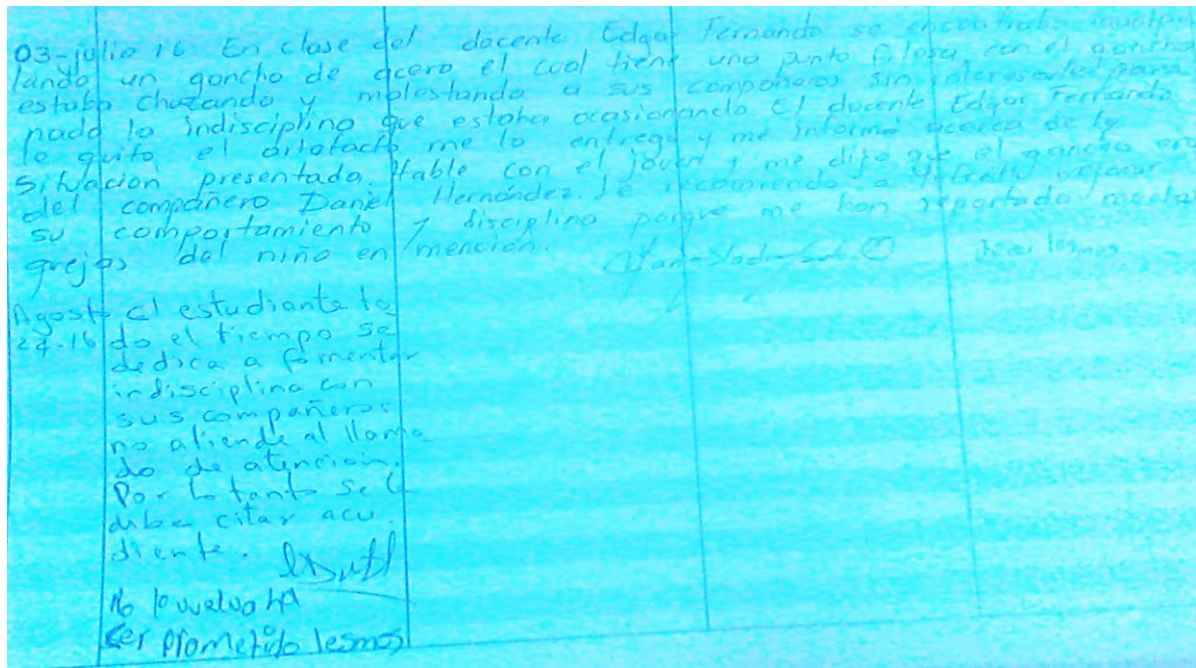 03-julio 16. En clase del docente Edgar Fernando se encontraba
lando un gancho de acero el cual tiene una punta filosa, con el gancho
estaba chuzando y molestando a sus compañeros sin interesarle para
nada la indisciplina que estaba ocasionando. El docente Edgar Fernando
le quito el artefacto me lo entrego y me informó acerca de la
situación presentada. Hable con el joven y me dijo que el gancho era
del compañero Daniel Hernández. Se recomienda a mejorar
su comportamiento y disciplina porque me han reportado muchas
quejas del niño en mención.
Agosto El estudiante to
24-16 do el tiempo se
dedica a fomentar
indisciplina con
sus compañeros
no atiende al llama
do de atención.
Por lo tanto se le
debe citar acu
diente.
No lo vuelvo ha
ser prometido lesmos